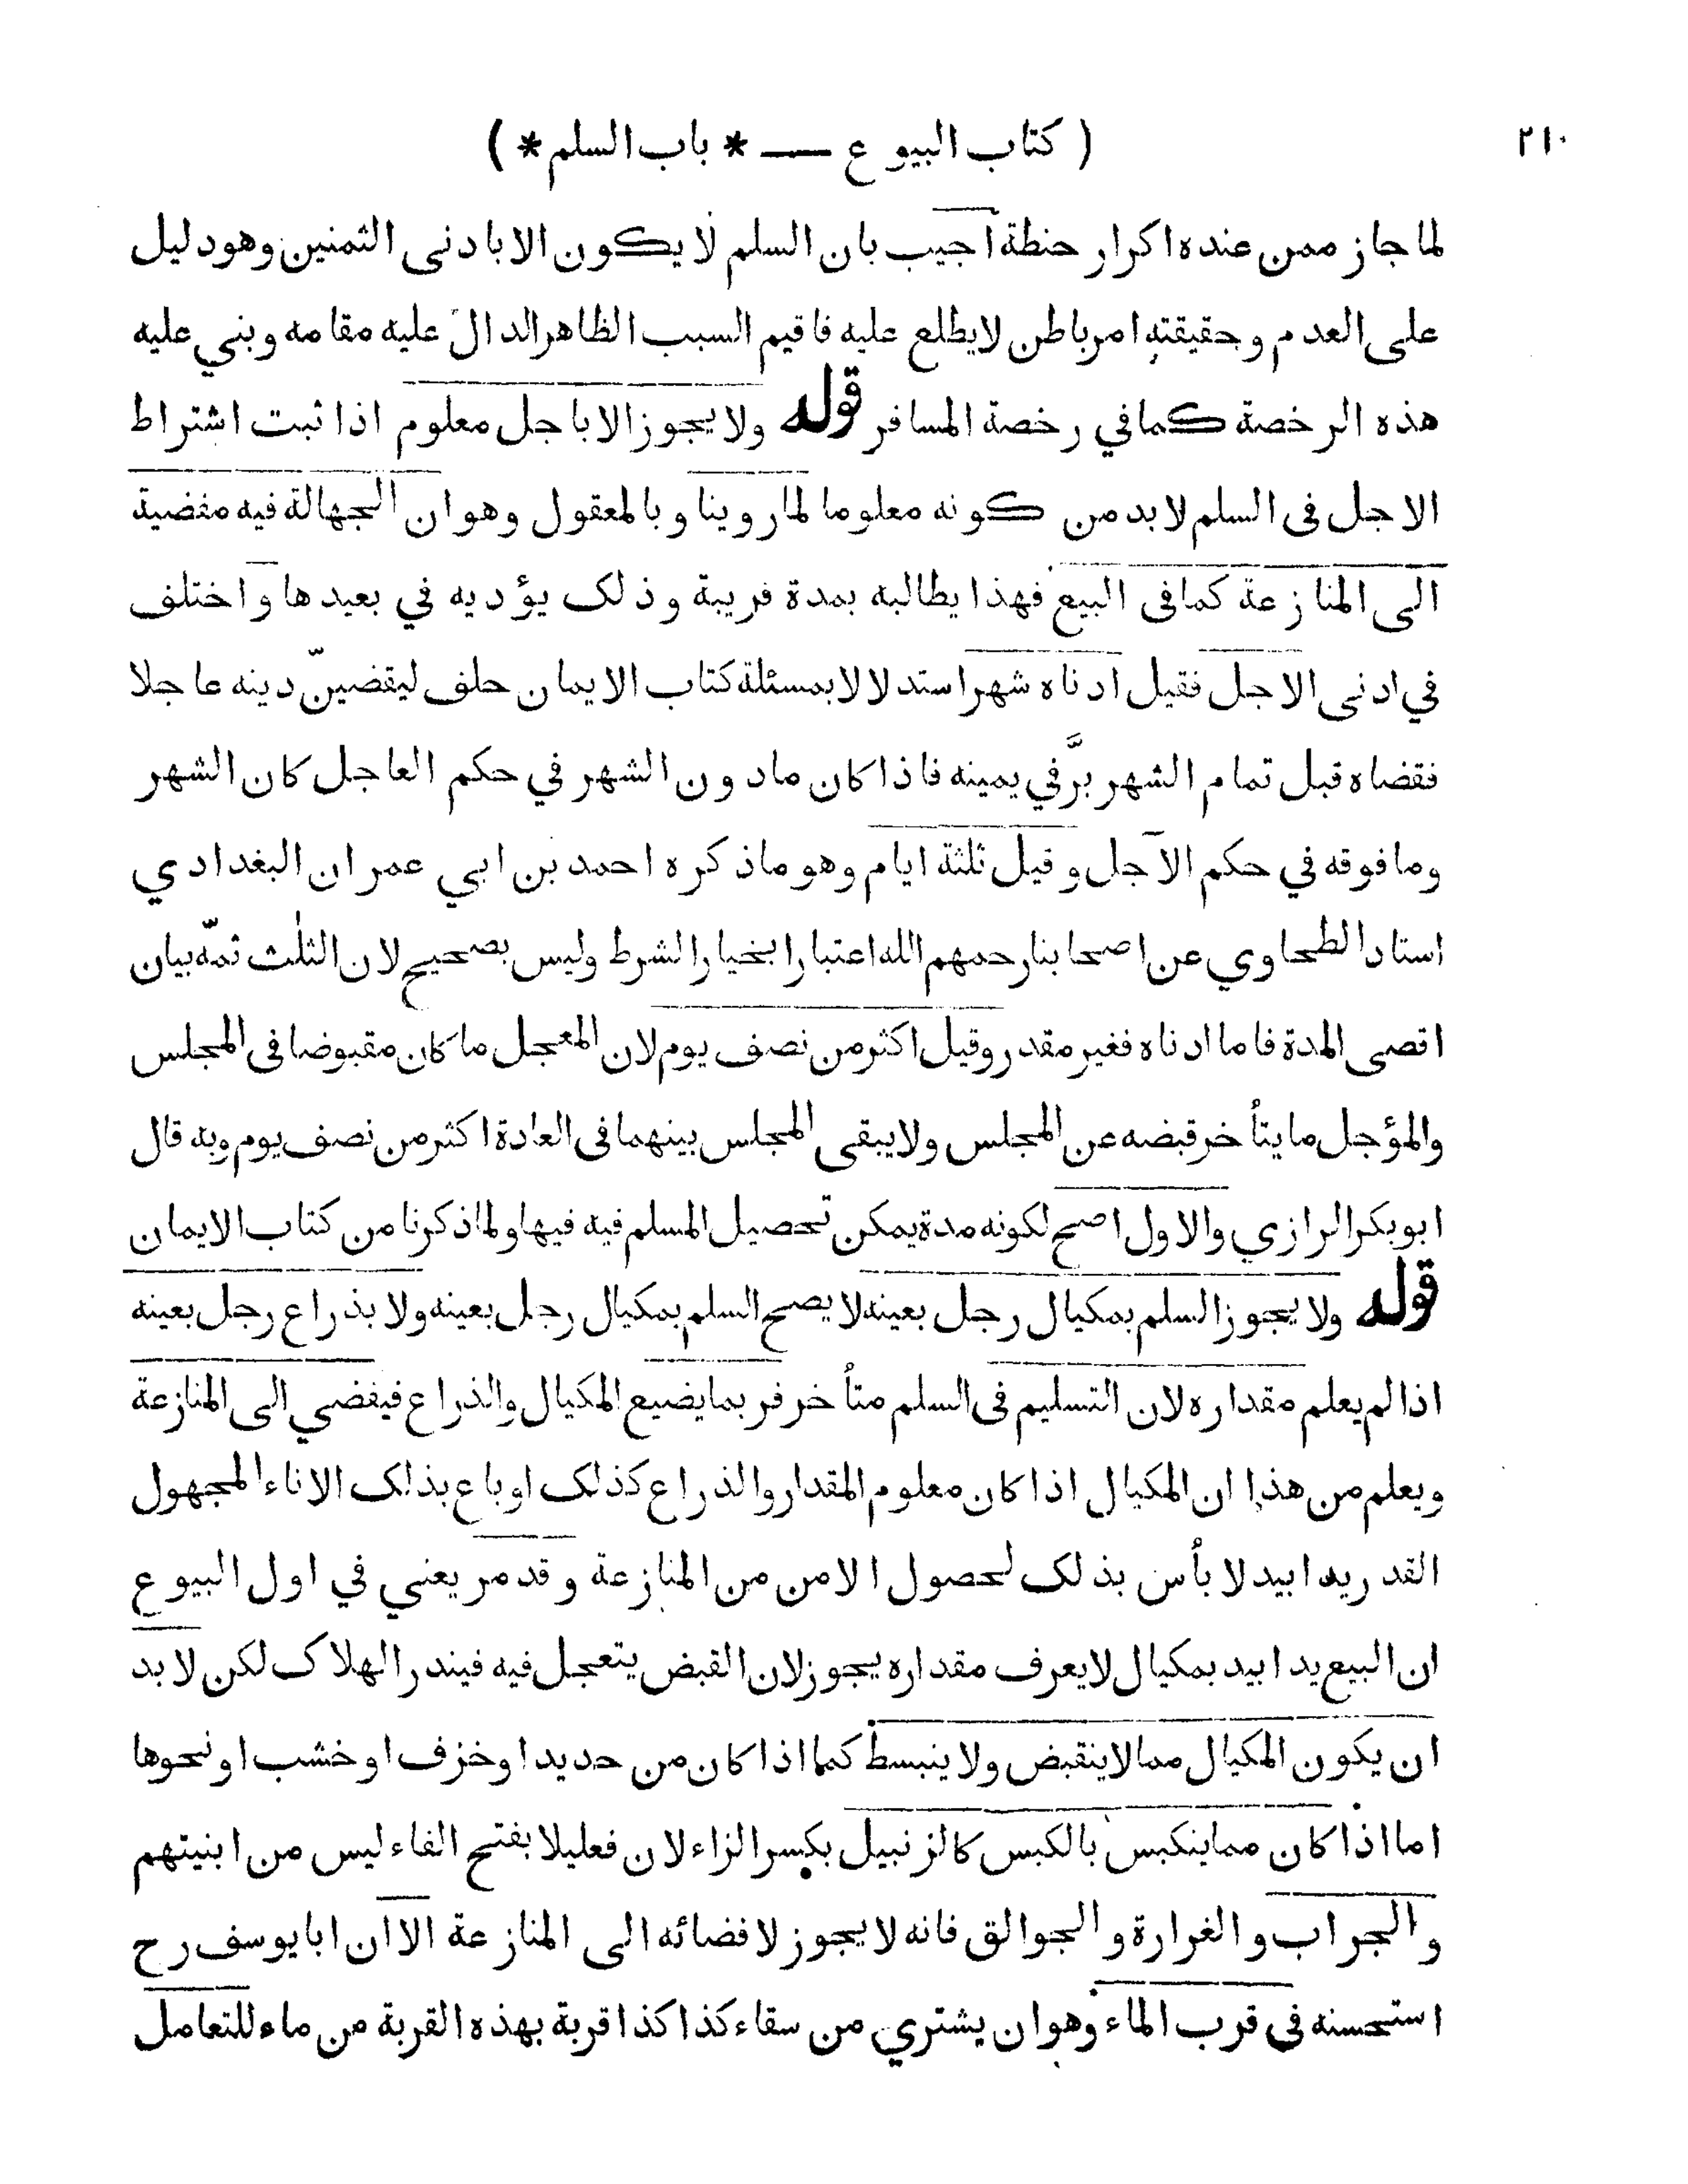 ٢١٠
( كتاب البيوع — * باب السلم * )
لما جاز ممن عنده اكرار حنطة اجيب بان السلم لا يكون الا بادنى الثمنين وهو دليل
على العدم وحقيقته امر باطن لا يطلع عليه فاقيم السبب الظاهر الدال عليه مقامه وبني عليه
هذه الرخصة كما في رخصة المسافر قوله ولا يجوز الا باجل معلوم اذا ثبت اشتراط
الاجل فى السلم لا بد من كونه معلوما لما روينا وبالمعقول وهو ان الجهالة فيه مفضية
الى المنازعة كما فى البيع فهذا يطالبه بمدة قريبة وذلك يؤديه في بعيدها واختلف
في ادنى الاجل فقيل ادناه شهر استدلالا بمسئلة كتاب الايمان حلف ليقضينّ دينه عاجلا
فقضاه قبل تمام الشهر برَّ في يمينه فاذا كان مادون الشهر في حكم العاجل كان الشهر
وما فوقه في حكم الآجل وقيل ثلثة ايام وهو ما ذكره احمد بن ابي عمران البغدادي
استاد الطحاوي عن اصحابنا رحمهم الله اعتبارا بخيار الشرط وليس بصحيح لان الثلث ثمّه بيان
اقصى المدة فاما ادناه فغير مقدر وقيل اكثر من نصف يوم لان المعجل ما كان مقبوضا فى المجلس
والمؤجل ما يتأخر قبضه عن المجلس ولا يبقى المجلس بينهما فى العادة اكثر من نصف يوم وبه قال
ابو بكر الرازي والاول اصح لكونه مدة يمكن تحصيل المسلم فيه فيها ولما ذكرنا من كتاب الايمان
قوله ولا يجوز السلم بمكيال رجل بعينه لا يصح السلم بمكيال رجل بعينه ولا بذراع رجل بعينه
اذا لم يعلم مقداره لان التسليم فى السلم متأخر فربما يضيع المكيال والذراع فيفضي الى المنازعة
ويعلم من هذا ان المكيال اذا كان معلوم المقدار والذراع كذلك او باع بذلك الاناء المجهول
القدر يدا بيد لا بأس بذلك لحصول الامن من المنازعة وقد مر يعني في اول البيوع
ان البيع يدا بيد بمكيال لا يعرف مقداره يجوز لان القبض يتعجل فيه فيندر الهلاك لكن لا بد
ان يكون المكيال مما لا ينقبض ولا ينبسط كما اذا كان من حديد او خزف او خشب او نحوها
اما اذا كان مما ينكبس بالكبس كالزنبيل بكسر الزاء لان فعليلا بفتح الفاء ليس من ابنيتهم
والجراب والغرارة والجوالق فانه لا يجوز لافضائه الى المنازعة الا ان ابا يوسف رح
استحسنه فى قرب الماء وهو ان يشتري من سقاء كذا كذا قربة بهذه القربة من ماء للتعامل